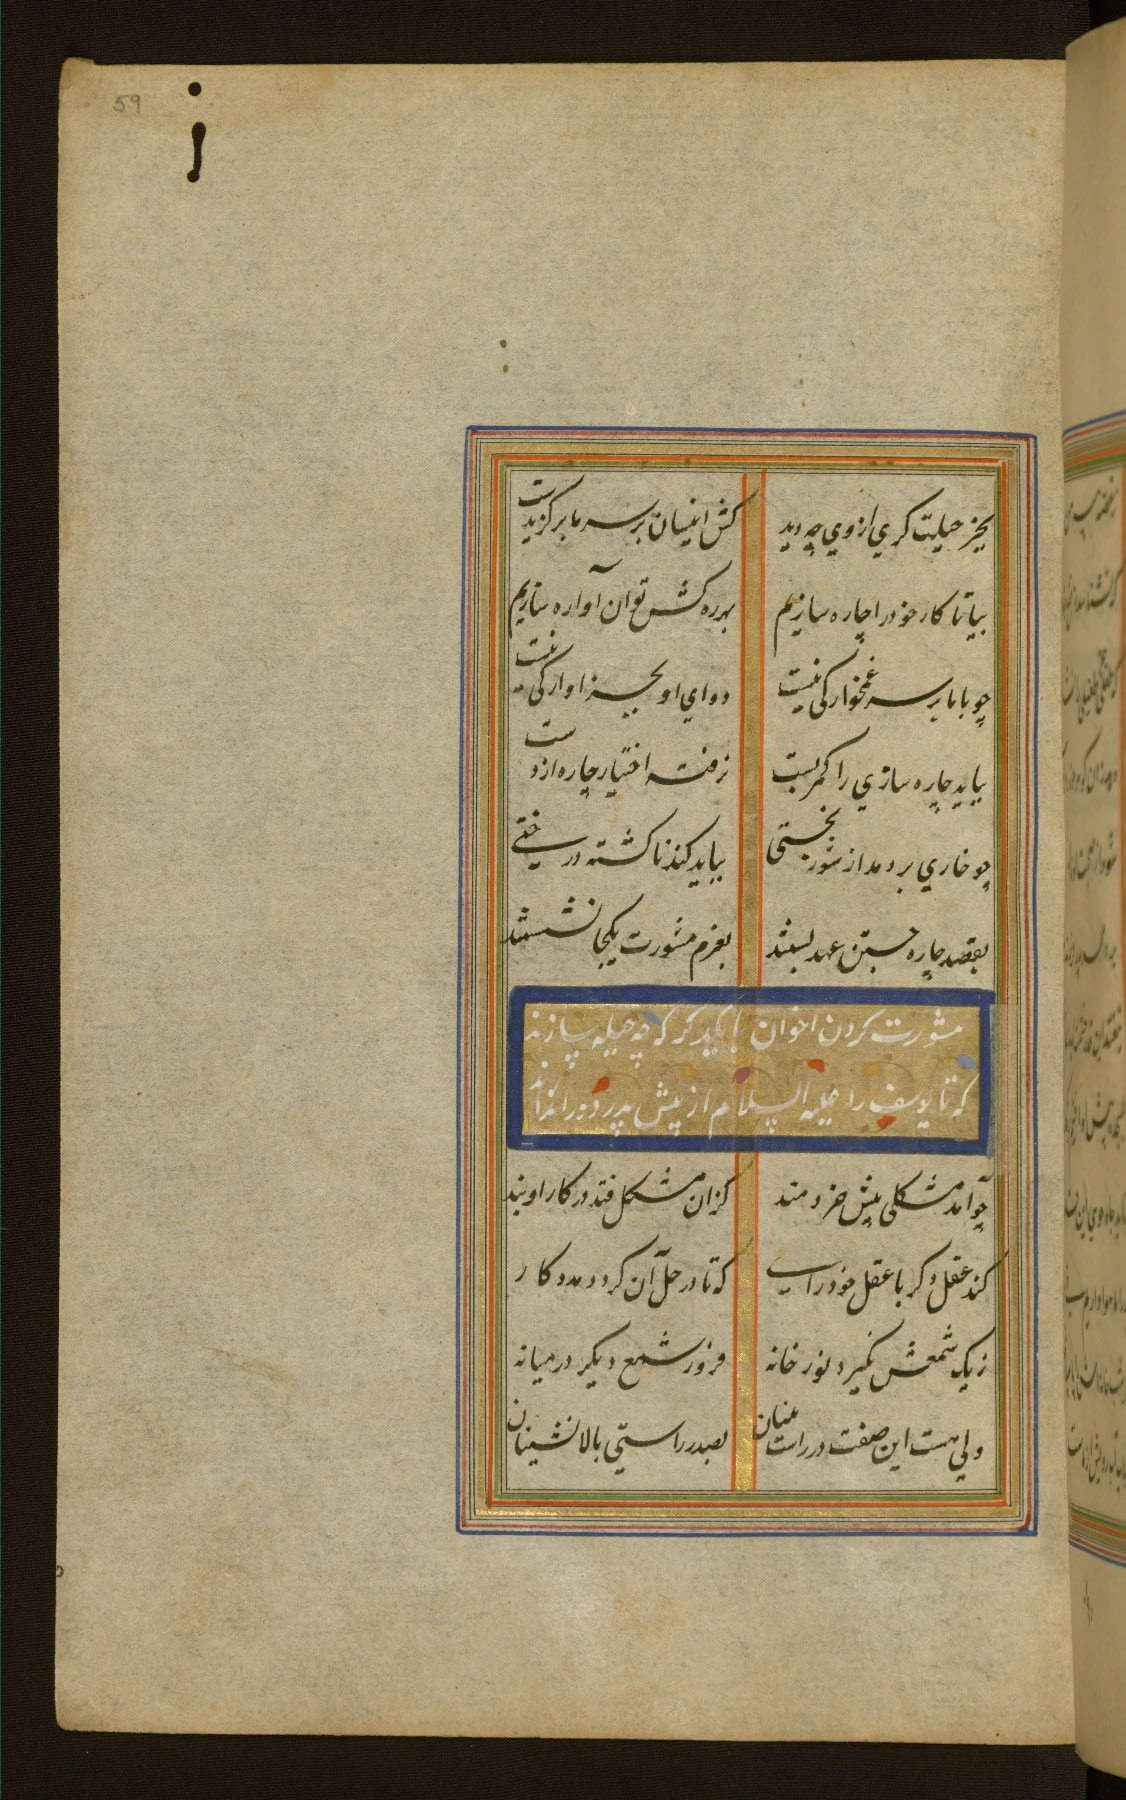 59
بجز حیلیت کری ازوی چه دید کش اینسان بر سر ما برکزیدست
بیا تا کار خود را چاره سازیم بهر ره کش توان آواره سازیم
چو با ما بر سر غمخوارکی نیست دوای او بجز اوارکی نیست
بباید چاره سازی را کمر بست نرفته اختیار چاره از دست
چو خاری بر دمد از شوربختی بباید کند ناکشته درختی
بقصد چاره جستن عهد بستند بعزم مشورت یکجا نشستند
مشورت کردن اخوان با یکدیکر که چه حیله سازند
که تا یوسف را علیه السلام از پیش پدر دور اندازند
چو آمد مشکلی پیش خردمند کزان مشکل فتد در کار او بند
کند عقل دکر با عقل خود راست که تا در حل آن کردد مددکار
ز یک شمعش نکیرد نور خانه فروزد شمع دیکر در میانه
ولی هست این صفت در راست بینان بصدر راستی بالا نشینان